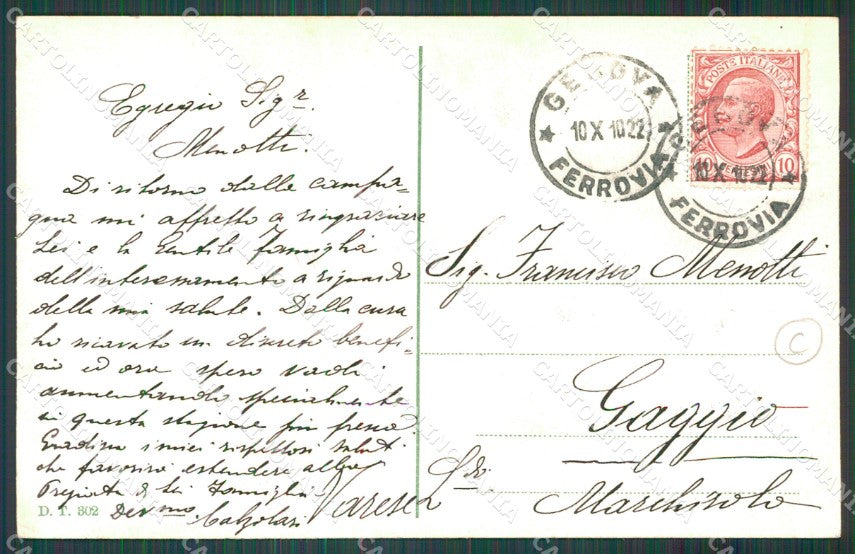 Egregio Sigr.
Menotti.
Di ritorno dalle campa-
gna mi affretto a ringraziare
Lei e la Gentile famiglia
dell'interessamento a riguardo
della mia salute. Dalla cura
ho ricavato un discreto benefi-
cio ed ora spero vadi
aumentando specialmente
in questa stagione più fresca.
Gradisca i miei rispettosi saluti
che favorirà estendere alla
Pregiata di Lei famiglia
Devmo Calzolari
D. T. 302
GENOVA
10 X 1022
FERROVIA
POSTE ITALIANE
10 10
GENOVA
10 X 1022
FERROVIA
Sig. Francesco Menotti
C
Gaggio
di
Marchirolo
Varese
CARTOLINOMANIA